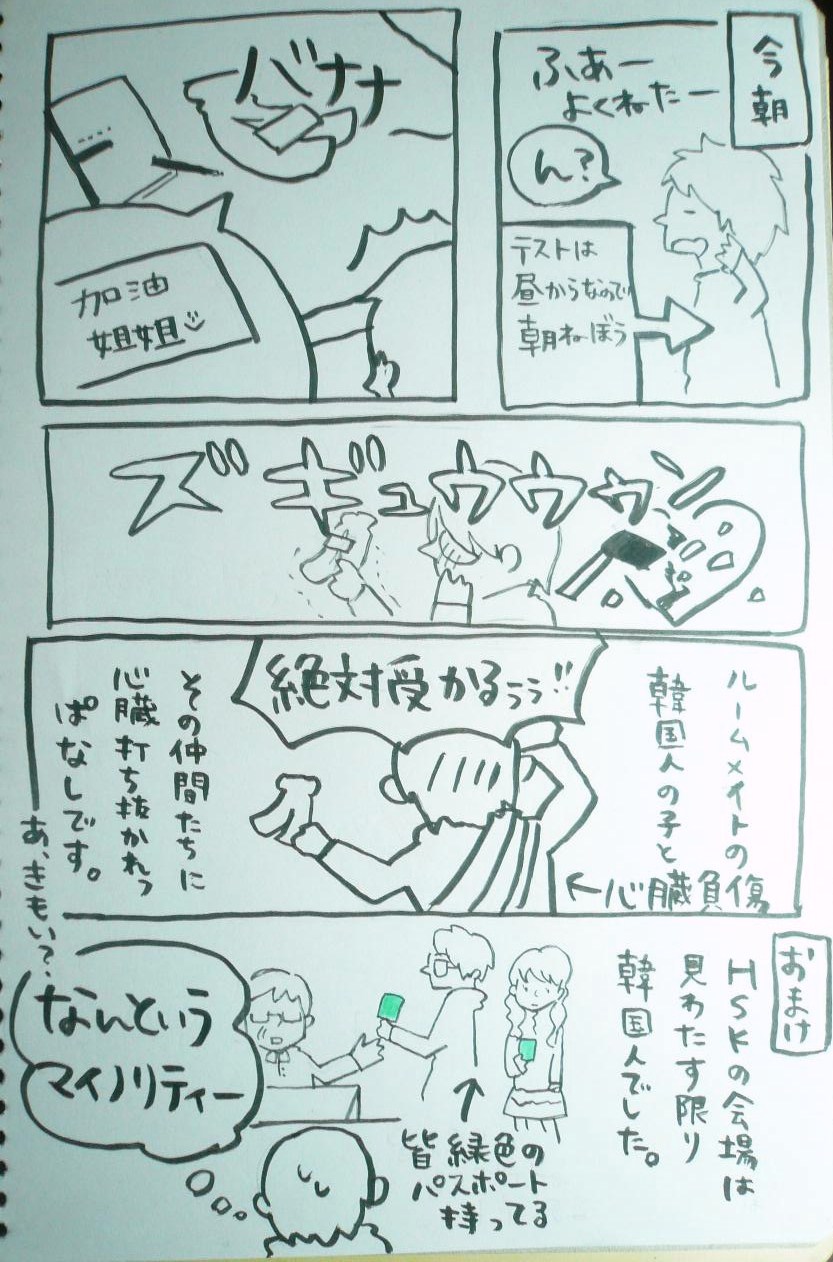 今朝
ふあー
よくねたー
ん?
テストは
昼からなので
朝ねぼう
バナナ
加油
姐姐
ズギュウウゥン
ルームメイトの
韓国人の子と
←心臓負傷
絶対受かるぅぅ!!
その仲間たちに
心臓打ち抜かれっ
ぱなしです。
あ、きもい?
おまけ
HSKの会場は
見わたす限り
韓国人でした。
皆緑色の
パスポート
持ってる
なんという
マイノリティー